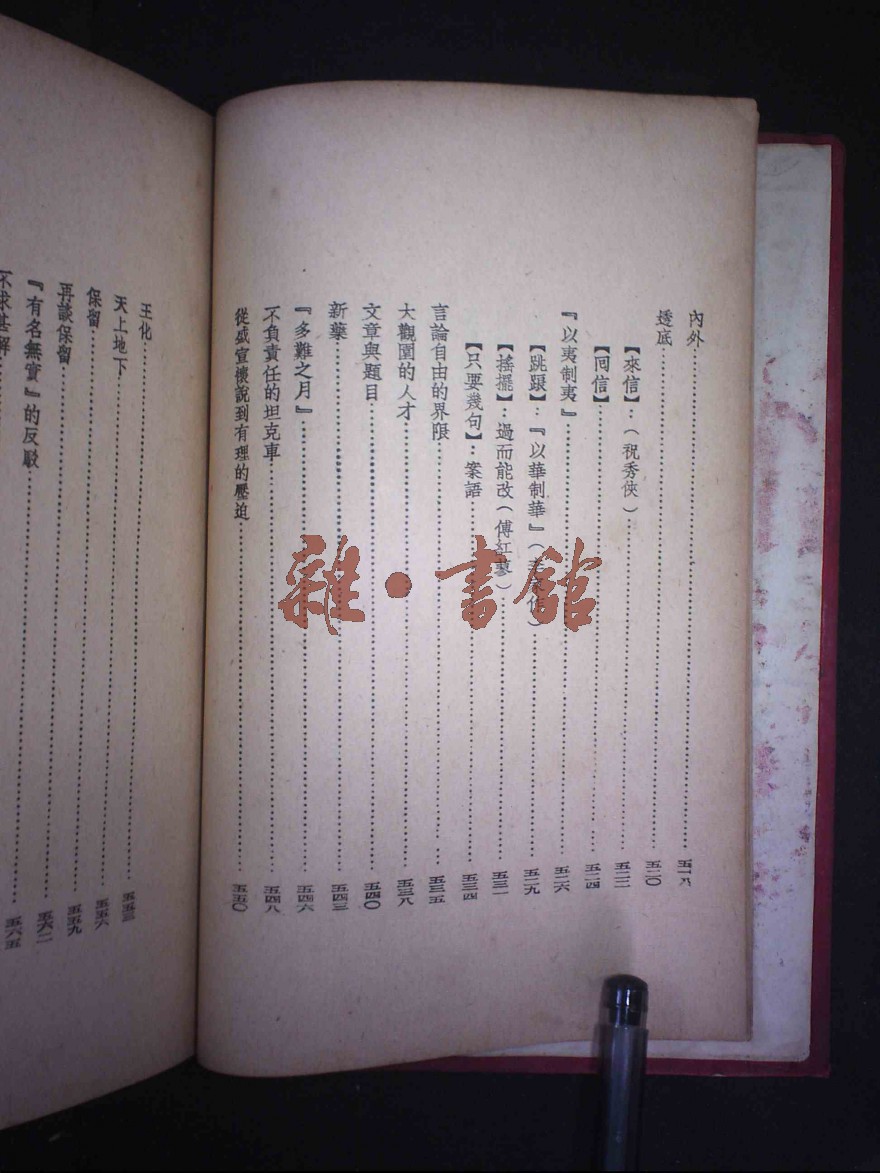 內外……五一八
透底……五二〇
【來信】：（祝秀俠）……五二二
【回信】……五二四
『以夷制夷』……五二六
【跳踉】：『以華制華』（）……五二九
【搖擺】：過而能改（傅紅蓼）……五三一
【只要幾句】：案語……五三四
言論自由的界限……五三五
大觀園的人才……五三八
文章與題目……五四〇
新藥……五四三
『多難之月』……五四六
不負責任的坦克車……五四八
從盛宣懷說到有理的壓迫……五五〇
王化……五五三
天上地下……五五六
保留……五五九
再談保留……五六二
『有名無實』的反駁……五六五
不求甚解……
雜·書館